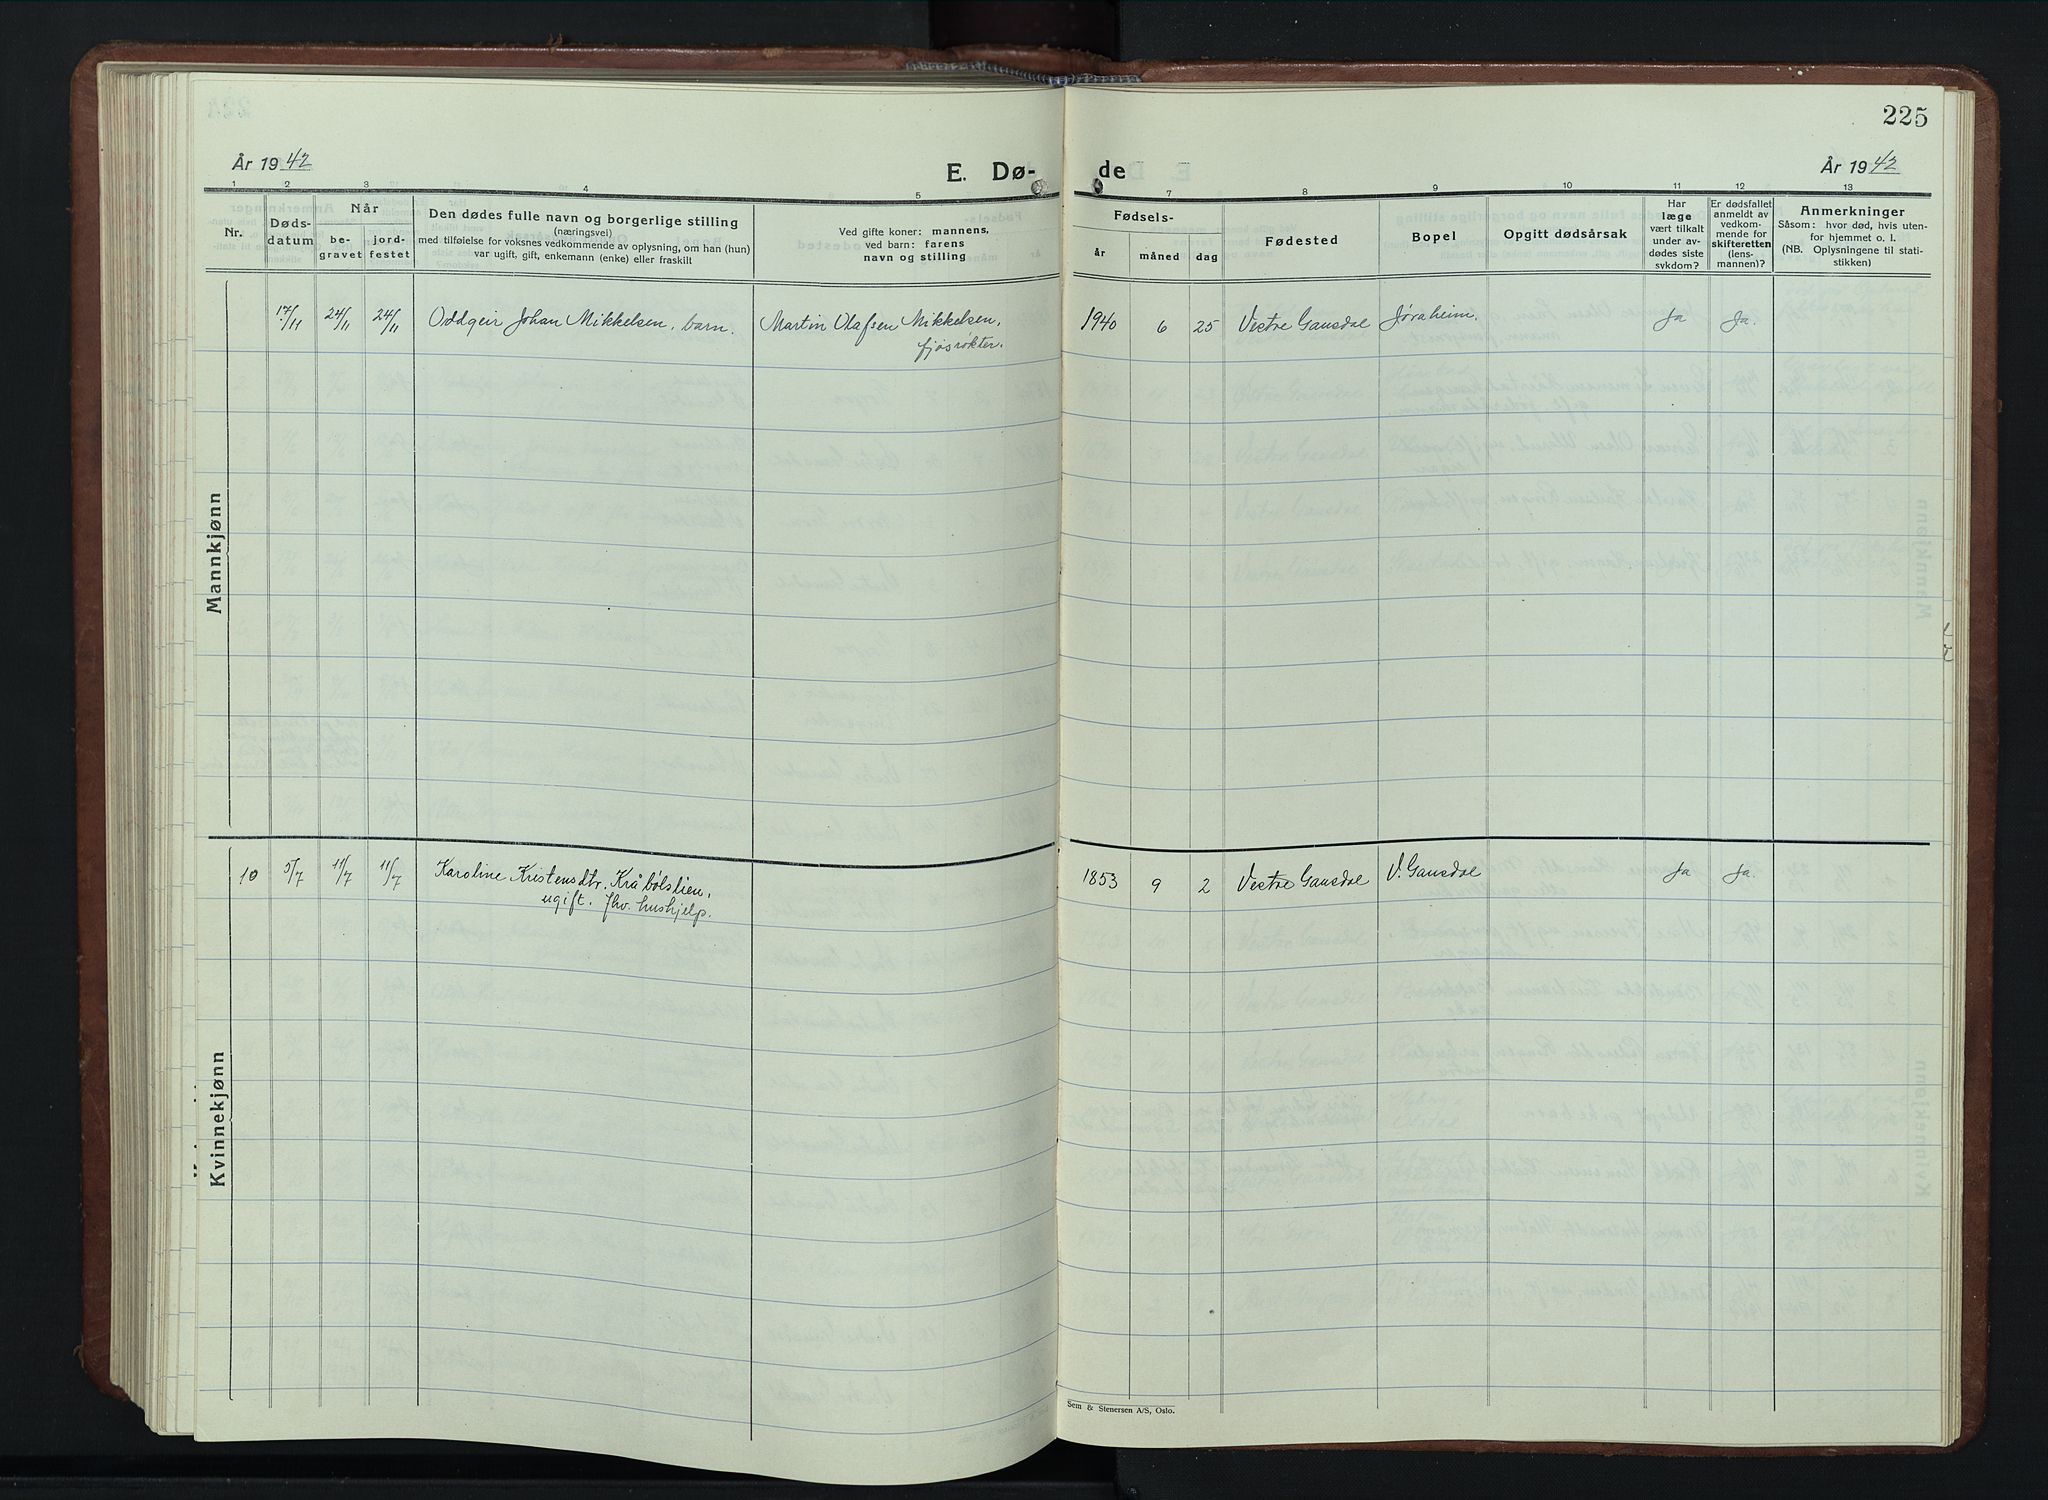 225
År 1942
E. Dø-
de
År 1942
1 2 3 4 5 7 8 9 10 11 12 13
Nr.
Døds-
datum
Når
be-
gravet
jord-
festet
Den dødes fulle navn og borgerlige stilling
(næringsvei)
med tilføielse for voksnes vedkommende av oplysning, om han (hun)
var ugift, gift, enkemann (enke) eller fraskilt
Ved gifte koner: mannens,
ved barn: farens
navn og stilling
Fødsels-
år måned dag
Fødested
Bopel
Opgitt dødsårsak
Har
læge
vært tilkalt
under av-
dødes siste
sykdom?
Er dødsfallet
anmeldt av
vedkom-
mende for
skifteretten
(lens-
mannen)?
Anmerkninger
Såsom: hvor død, hvis uten-
for hjemmet o. l.
(NB. Oplysningene til stati-
stikken)
Mannkjønn
17/11 24/11 24/11 Oddgeir Johan Mikkelsen, barn. Martin Olafsen Mikkelsen, 1940 6 25 Vestre Gausdal Jøraheim. Ja Ja.
fjøsrøkter.
Kvinnekjønn
10 5/7 11/7 11/7 Karoline Kristensdtr. Kråbølslien, 1853 9 2 Vestre Gausdal V. Gausdal Ja Ja.
ugift. fhv. hushjelp.
Sem & Stenersen A/S, Oslo.